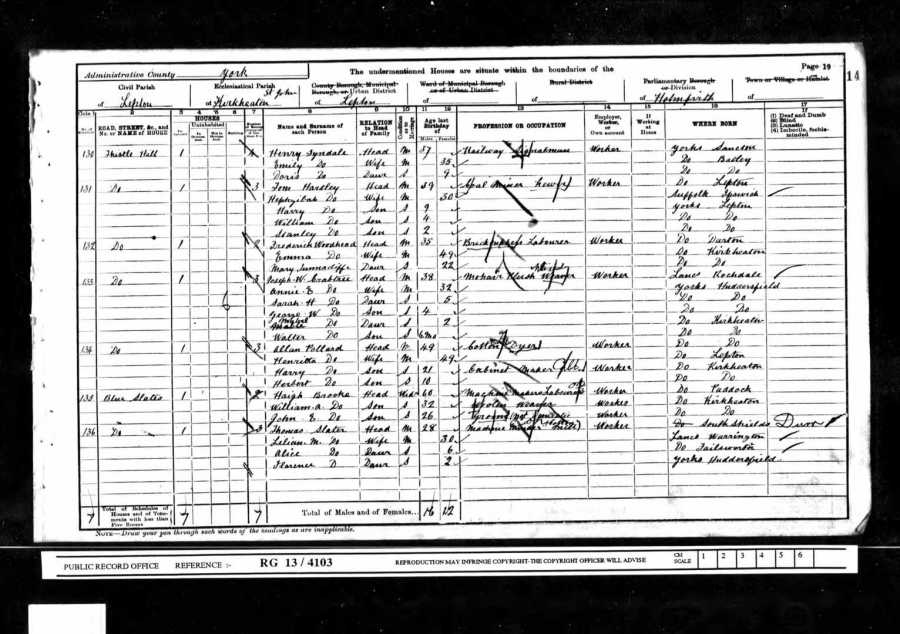 Page 19
14
Administrative County York
The undermentioned Houses are situate within the boundaries of the
Civil Parish of Lepton
Ecclesiastical Parish of St John Kirkheaton
County Borough, Municipal Borough, or Urban District of Lepton
Ward of Municipal Borough or of Urban District
Rural District
Parliamentary Borough or Division of Holmfirth
Town or Village or Hamlet
ROAD, STREET, &c., and No. or NAME of HOUSE
HOUSES
Name and Surname of each Person
RELATION to Head of Family
Age last Birthday of
PROFESSION OR OCCUPATION
Employer, Worker, or Own account
If Working at Home
WHERE BORN
(1) Deaf and Dumb
(2) Blind
(3) Lunatic
(4) Imbecile, feeble-minded
130 Thistle Hill 1 4 Henry Tyndale Head M 57 Railway Signalman Worker Yorks
Emily Do Wife M 35 Do Batley
Doris Do Daur S 9 Do Do
131 Do 1 3 Tom Hardley Head M 39 Coal Miner Hewer Worker Do Lepton
Hephzibah Do Wife M 30 Suffolk Ipswich
Harry Do Son S 9 Yorks Lepton
William Do Son S 4 Do Do
Stanley Do Son S 2 Do Do
132 Do 1 2 Frederick Woodhead Head M 35 Labourer Worker Do Darton
Emma Do Wife M 49 Do Kirkheaton
Mary Sunnadiffe Daur S 22 Do Do
133 Do 1 3 Joseph W. Crabtree Head M 38 Mohair Plush Weaver Worker Lancs Rochdale
Annie E Do Wife M 32 Yorks Huddersfield
Sarah H Do Daur S 5 Do Do
George W Do Son S 4 Do Do
Do Daur S 2 Do Kirkheaton
Walter Do Son S 6mo Do Do
134 Do 1 3 Allan Pollard Head M 49 Cotton Dyer Worker Do Do
Henrietta Do Wife M 49 Do Lepton
Harry Do Son S 21 Cabinet Maker Worker Do Kirkheaton
Herbert Do Son S 10 Do Do
135 Blue Slates 1 2 Haigh Brooke Head Widr 60 Machine Makers Labourer Worker Do Paddock
William A. Do Son S 32 Woollen Weaver Worker Do Kirkheaton
John E. Do Son S 26 Worker Do Do
136 Do 1 3 Thomas Slater Head M 28 Machine Minder Worker Do South Shields
Lilian M. Do Wife M 30 Lancs Warrington
Alice Do Daur S 6 Do Failsworth
Florence D Daur S 2 Yorks Huddersfield
7 Total of Schedules of Houses and of Tenements with less than Five Rooms 7 7 Total of Males and of Females... 16 12
NOTE—Draw your pen through such words of the headings as are inapplicable.
PUBLIC RECORD OFFICE REFERENCE :- RG 13/4103 REPRODUCTION MAY INFRINGE COPYRIGHT-THE COPYRIGHT OFFICER WILL ADVISE CM SCALE 1 2 3 4 5 6